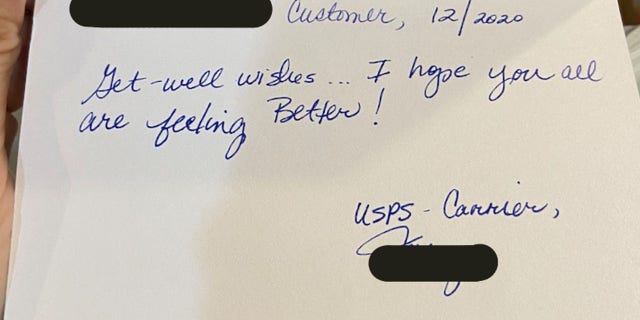 Customer, 12/2020
Get-well wishes... I hope you all
are feeling Better!
USPS - Carrier,